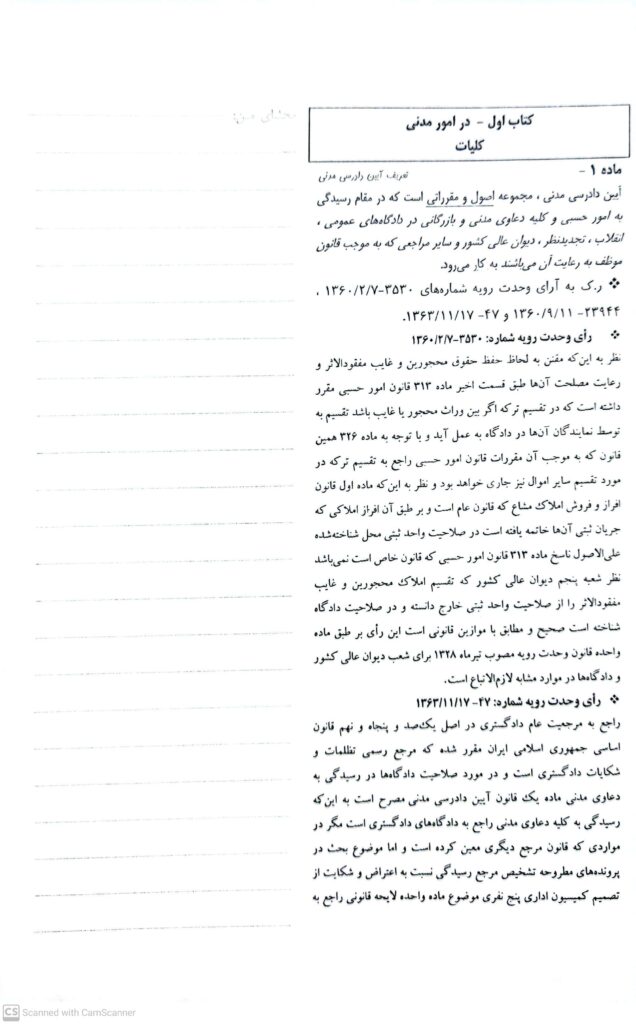 محشای من:
کتاب اول - در امور مدنی
کلیات
ماده ۱ - تعریف آیین دادرسی مدنی
آیین دادرسی مدنی ، مجموعه اصول و مقرراتی است که در مقام رسیدگی
به امور حسبی و کلیه دعاوی مدنی و بازرگانی در دادگاه‌های عمومی ،
انقلاب ، تجدیدنظر ، دیوان عالی کشور و سایر مراجعی که به موجب قانون
موظف به رعایت آن می‌باشند به کار می‌رود.
❖ ر.ک به آرای وحدت رویه شماره‌های ۳۵۳۰-۱۳۶۰/۲/۷ ،
۲۳۹۴۴- ۱۳۶۰/۹/۱۱ و ۴۷- ۱۳۶۳/۱۱/۱۷.
❖ رأی وحدت رویه شماره: ۳۵۳۰-۱۳۶۰/۲/۷
نظر به این‌که مقنن به لحاظ حفظ حقوق محجورین و غایب مفقودالاثر و
رعایت مصلحت آن‌ها طبق قسمت اخیر ماده ۳۱۳ قانون امور حسبی مقرر
داشته است که در تقسیم ترکه اگر بین وراث محجور یا غایب باشد تقسیم به
توسط نمایندگان آن‌ها در دادگاه به عمل آید و با توجه به ماده ۳۲۶ همین
قانون که به موجب آن مقررات قانون امور حسبی راجع به تقسیم ترکه در
مورد تقسیم سایر اموال نیز جاری خواهد بود و نظر به این‌که ماده اول قانون
افراز و فروش املاک مشاع که قانون عام است و بر طبق آن افراز املاکی که
جریان ثبتی آن‌ها خاتمه یافته است در صلاحیت واحد ثبتی محل شناخته‌شده
علی‌الاصول ناسخ ماده ۳۱۳ قانون امور حسبی که قانون خاص است نمی‌باشد
نظر شعبه پنجم دیوان عالی کشور که تقسیم املاک محجورین و غایب
مفقودالاثر را از صلاحیت واحد ثبتی خارج دانسته و در صلاحیت دادگاه
شناخته است صحیح و مطابق با موازین قانونی است این رأی بر طبق ماده
واحده قانون وحدت رویه مصوب تیرماه ۱۳۲۸ برای شعب دیوان عالی کشور
و دادگاه‌ها در موارد مشابه لازم‌الاتباع است.
❖ رأی وحدت رویه شماره: ۴۷- ۱۳۶۳/۱۱/۱۷
راجع به مرجعیت عام دادگستری در اصل یک‌صد و پنجاه و نهم قانون
اساسی جمهوری اسلامی ایران مقرر شده که مرجع رسمی تظلمات و
شکایات دادگستری است و در مورد صلاحیت دادگاه‌ها در رسیدگی به
دعاوی مدنی ماده یک قانون آیین دادرسی مدنی مصرح است به این‌که
رسیدگی به کلیه دعاوی مدنی راجع به دادگاه‌های دادگستری است مگر در
مواردی که قانون مرجع دیگری معین کرده است و اما موضوع بحث در
پرونده‌های مطروحه تشخیص مرجع رسیدگی نسبت به اعتراض و شکایت از
تصمیم کمیسیون اداری پنج نفری موضوع ماده واحده لایحه قانونی راجع به
CS Scanned with CamScanner